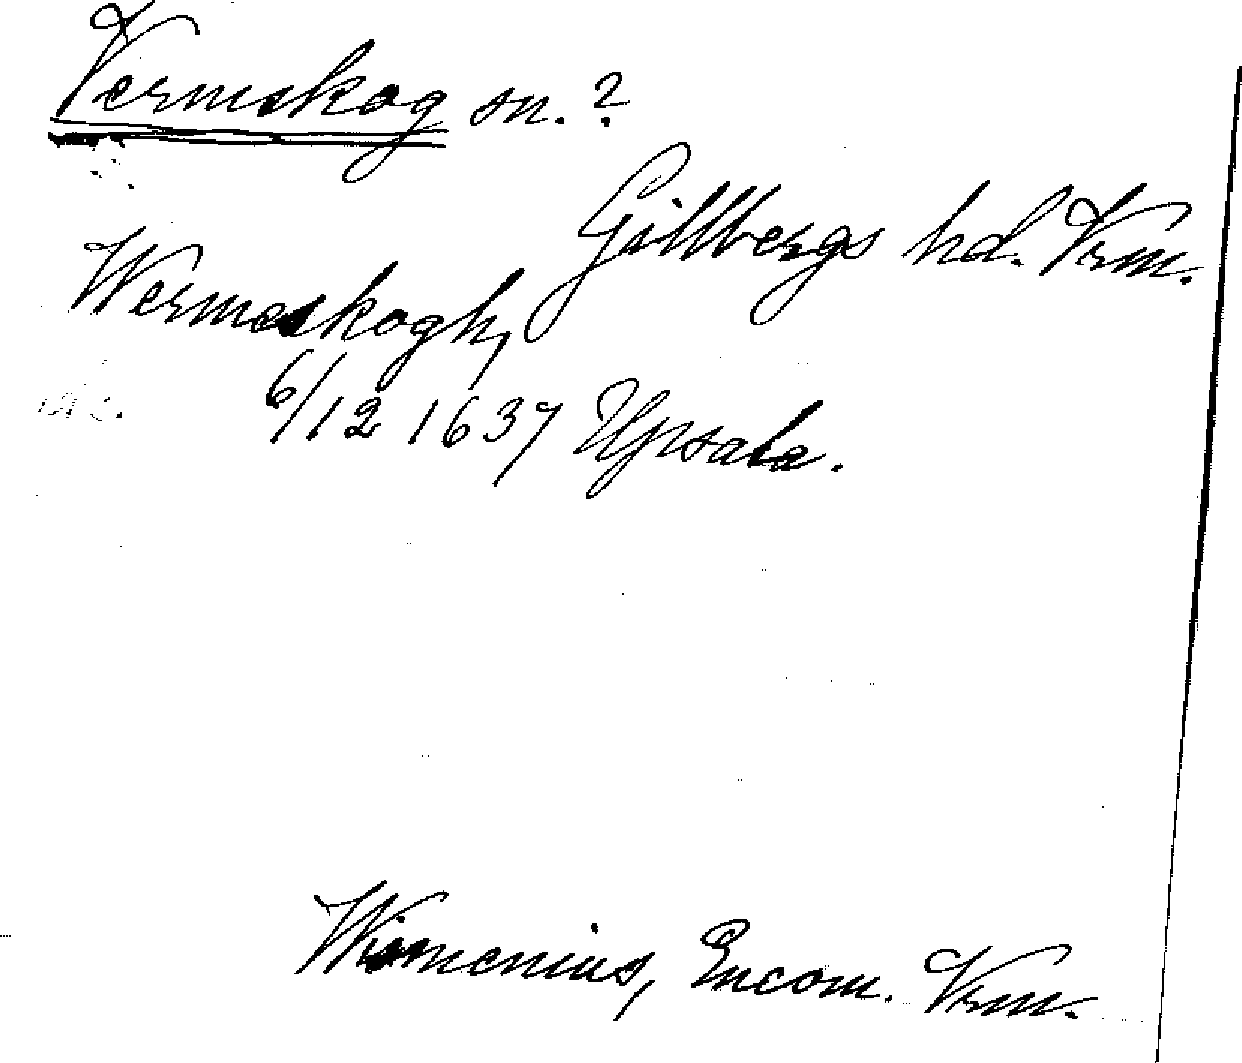 Vermskog sn. ?
Gillbergs hd. Vrm.
Wermeskogh,
6/12 1637 Upsala.
Encom. Vrm.